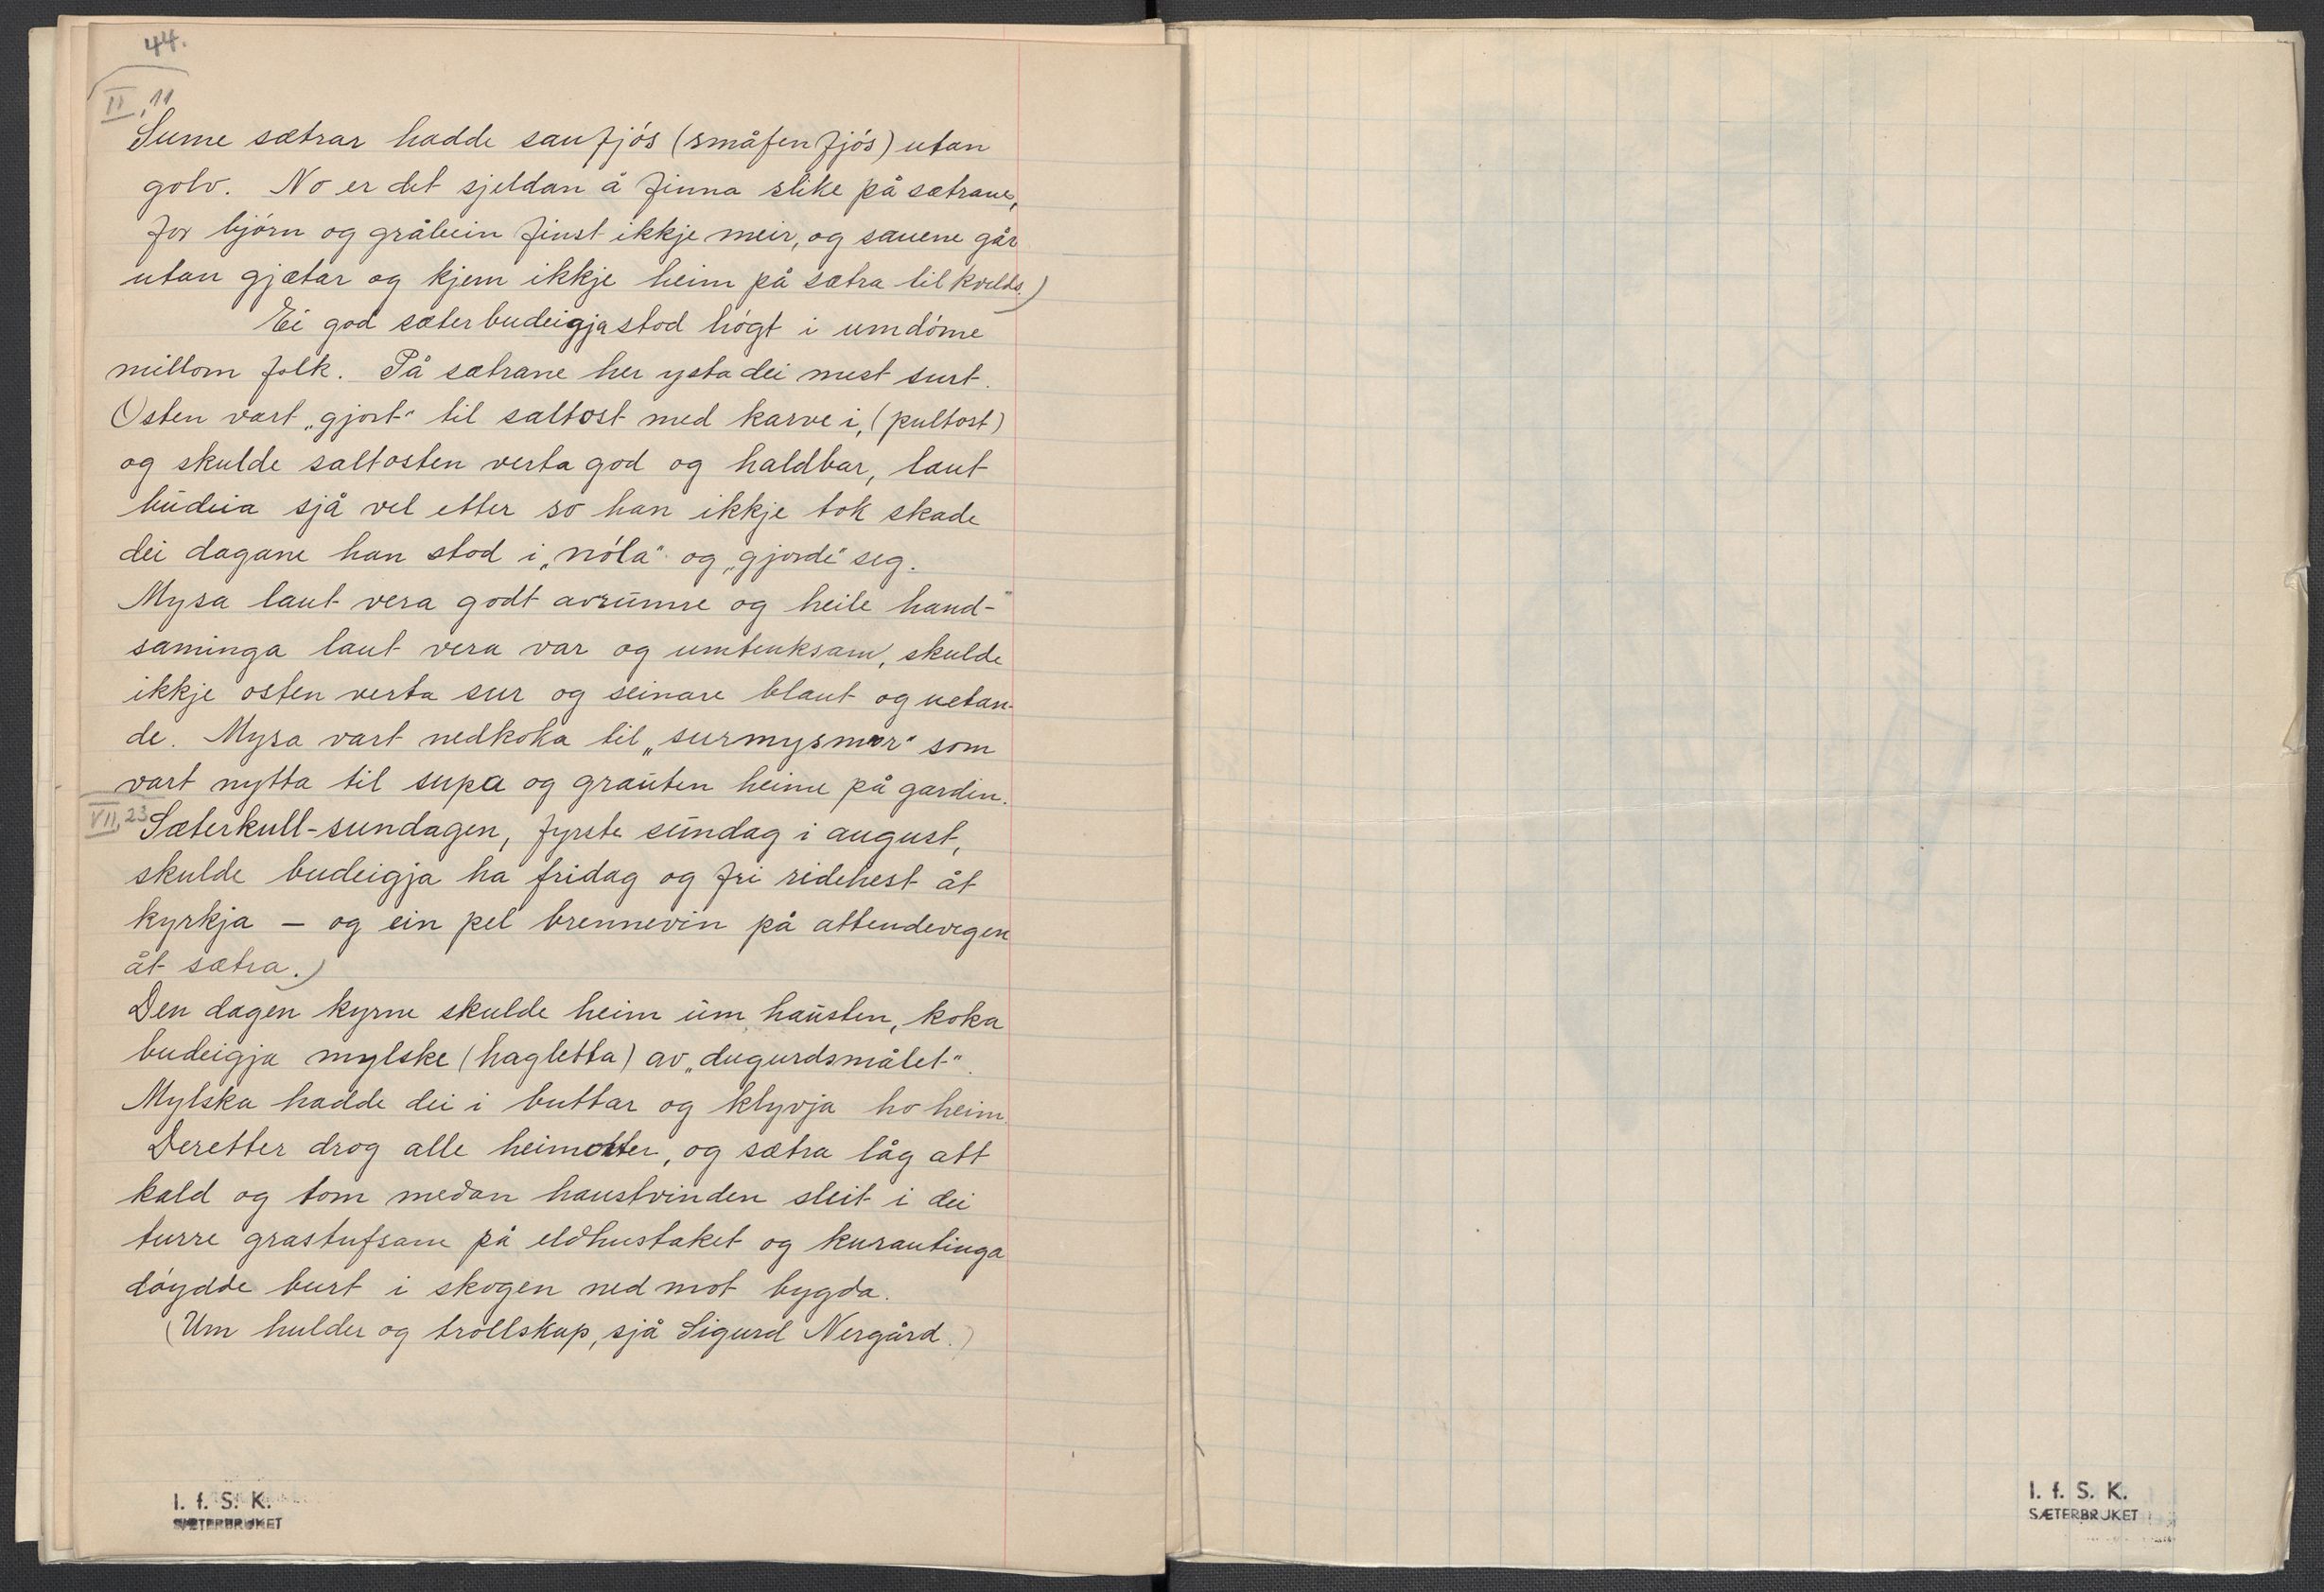 44.
II, 11
Sume sætrar hadde saufjós (småfenfjós) utan
golv. No er det sjeldan å finna slike på sætrane,
for bjórn og gråbein finst ikkje meir, og sauene går
utan gjætar og kjem ikkje heim på sætra til kvelds.)
Ei god sæterbudeigja stod högt i umdóme
millom folk. På sætrane her ysta dei mest surt.
Osten vart „gjort“ til saltost med karve i, (pultost)
og skulde saltosten verta god og haldbar, laut
budeia sjå vel etter so han ikkje tok skade
dei dagane han stod i „nóla“ og „gjorde“ seg.
Mysa laut vera godt avrunne og heile hand-
saminga laut vera var og umtenksam, skulde
ikkje osten verta sur og seinare blaut og uetan-
de. Mysa vart nedkoka til „surmysmør“ som
vart nytta til supa og grauten heime på garden.
VII, 23
Sæterkull-sundagen, fyrste sundag i august,
skulde budeigja ha fridag og fri ridehest åt
kyrkja – og ein pel brennevin på attendevegen
åt sætra.)
Den dagen kyrne skulde heim um hausten, koka
budeigja mylske (hagletta) av „dugurdsmålet“.
Mylska hadde dei i buttar og klyvja ho heim.
Deretter drog alle heimatter, og sætra låg att
kald og tom medan haustvinden sleit i dei
turre grastufsane på eldhustaket og kurautinga
dóydde burt i skogen ned mot bygda.
(Um hulder og trollskap, sjå Sigurd Nergård.)
I. f. S. K.
SÆTERBRUKET
I. f. S. K.
SÆTERBRUKET